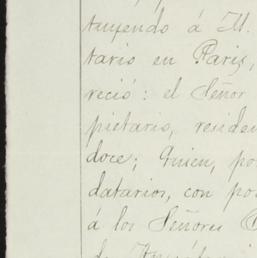 tuyendo á M.
tario en Paris,
reció: el Señor
pietario, residen
doce; quien, po
datarios, con po
á los Señores
de